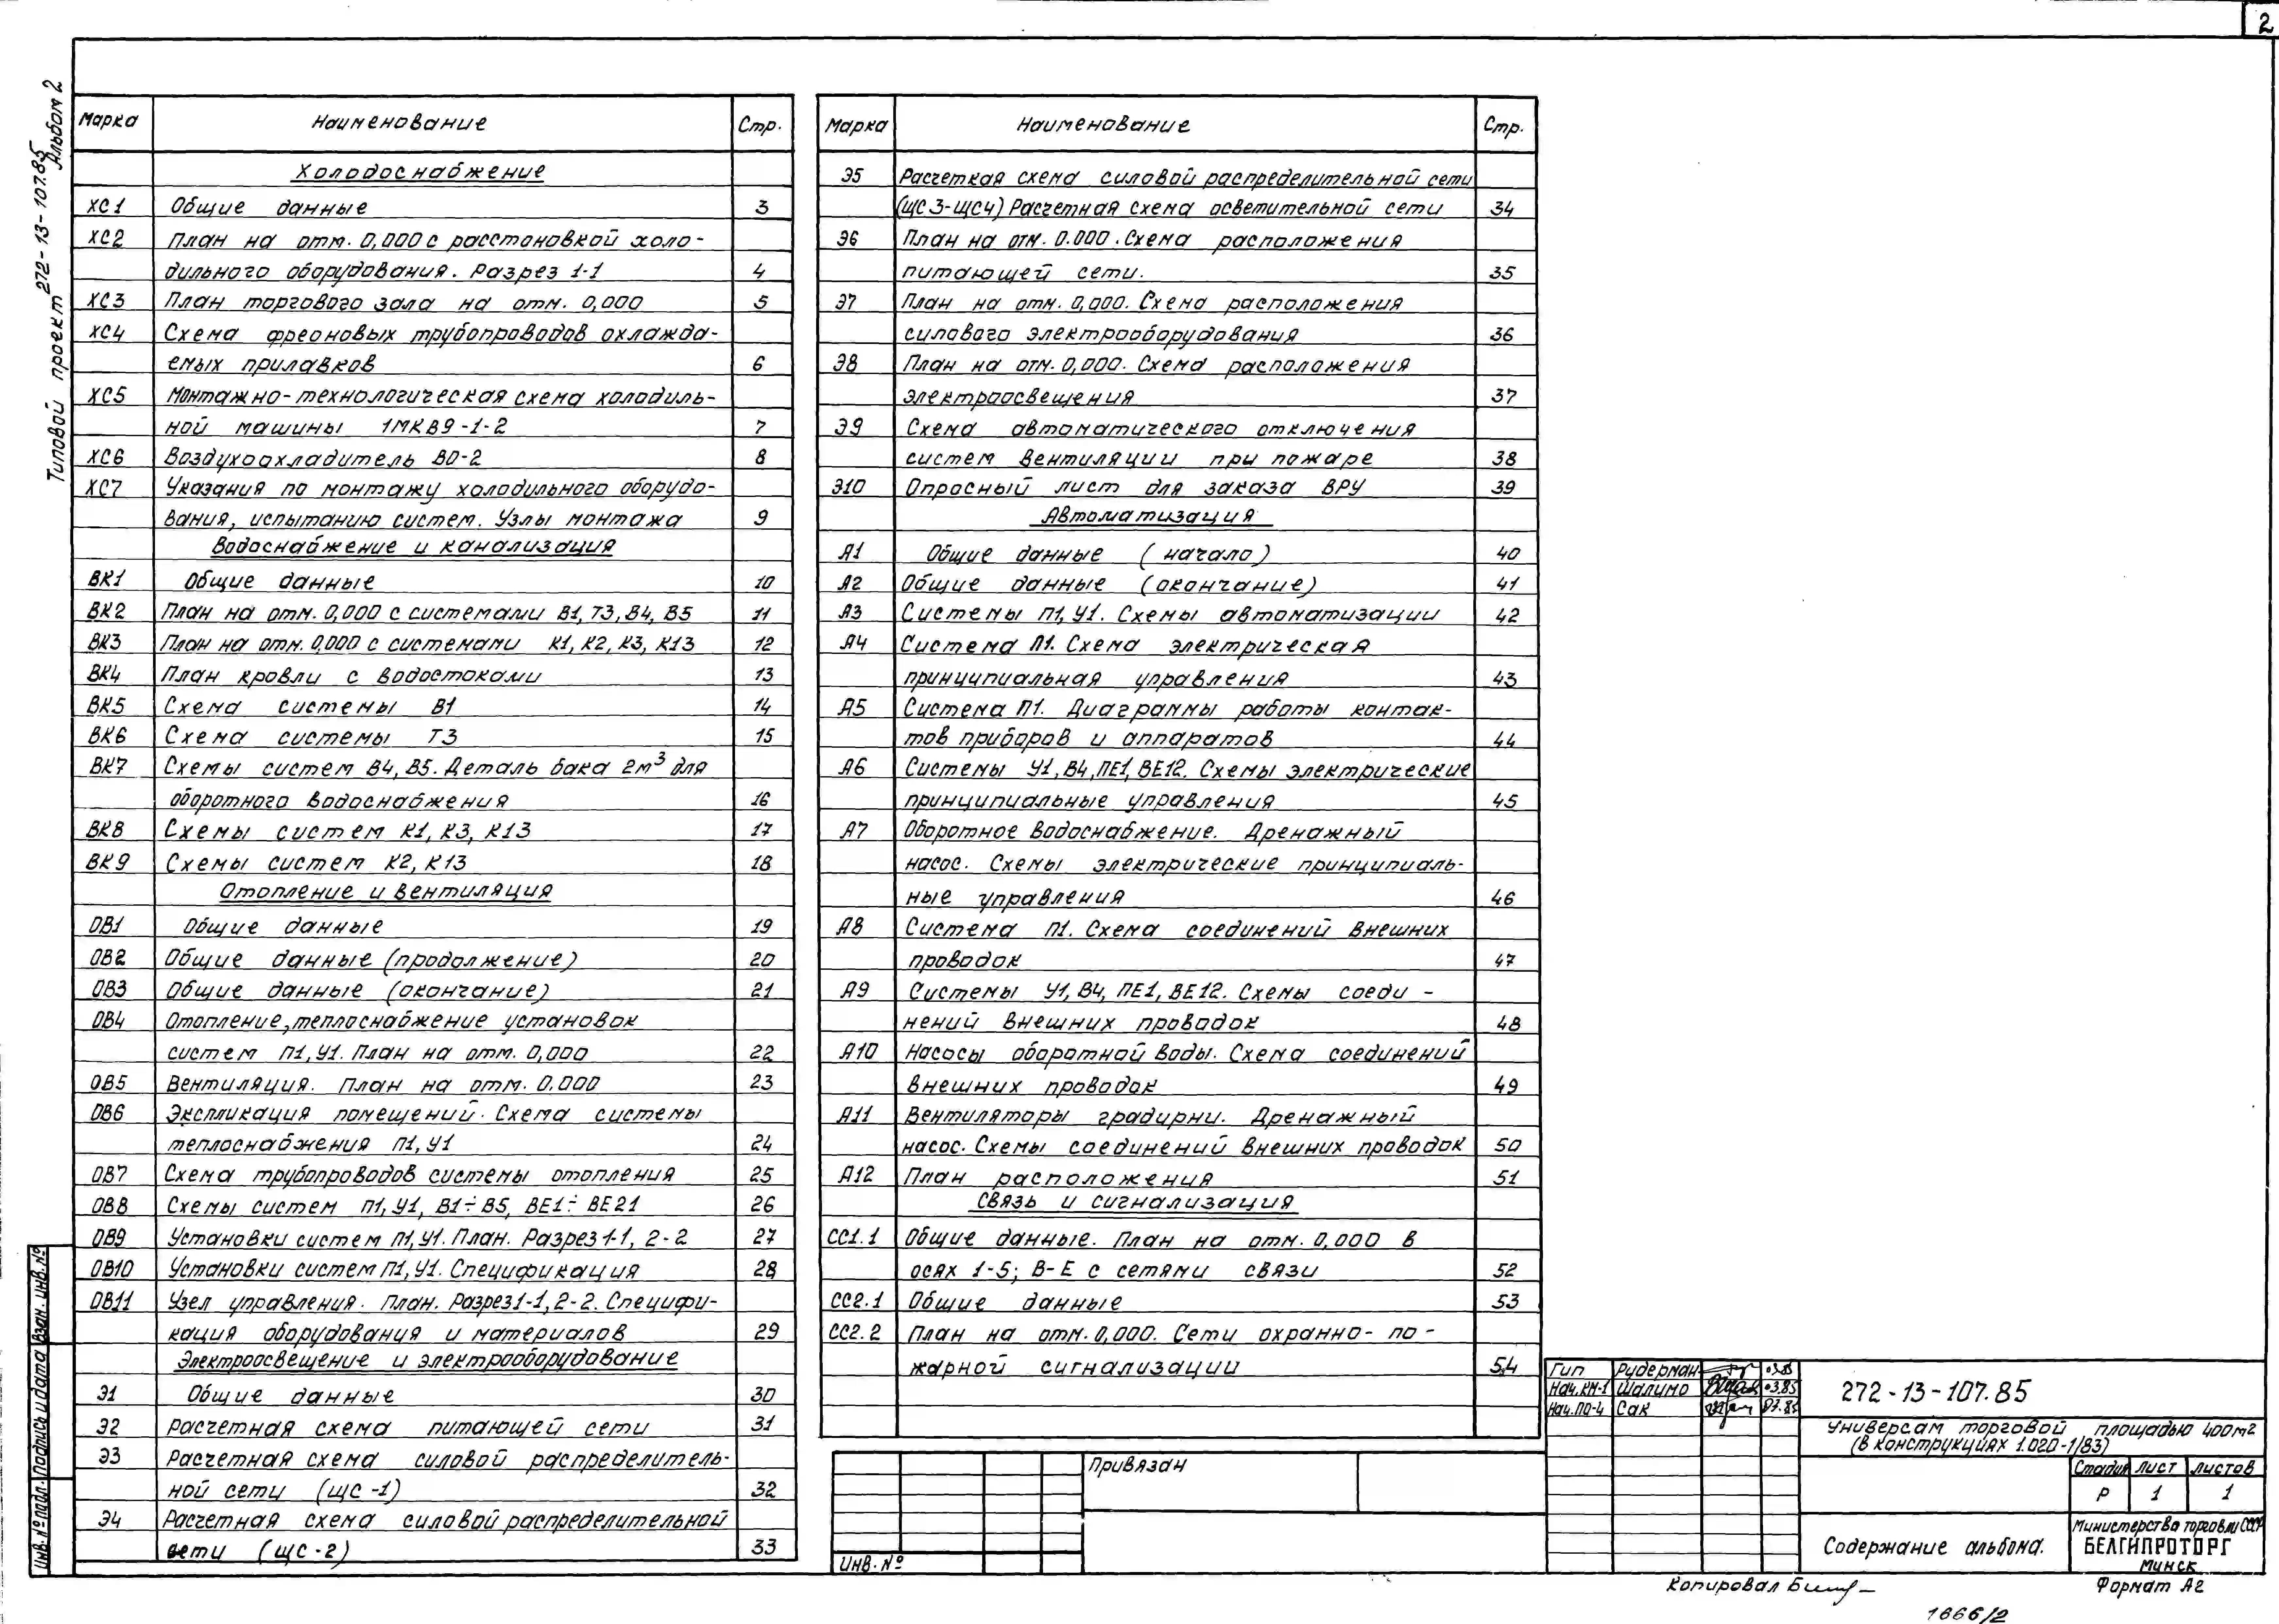 2
Типовой проект 272-13-107.85 Альбом 2
Марка Наименование Стр.
Холодоснабжение
ХС1 Общие данные 3
ХС2 План на отм. 0,000 с расстановкой холо-
дильного оборудования. Разрез 1-1 4
ХС3 План торгового зала на отм. 0,000 5
ХС4 Схема фреоновых трубопроводов охлажда-
емых прилавков 6
ХС5 Монтажно-технологическая схема холодиль-
ной машины 1МКВ9-1-2 7
ХС6 Воздухоохладитель ВО-2 8
ХС7 Указания по монтажу холодильного оборудо-
вания, испытанию систем. Узлы монтажа 9
Водоснабжение и канализация
ВК1 Общие данные 10
ВК2 План на отм. 0,000 с системами В1, Т3, В4, В5 11
ВК3 План на отм. 0,000 с системами К1, К2, К3, К13 12
ВК4 План кровли с водостоками 13
ВК5 Схема системы В1 14
ВК6 Схема системы Т3 15
ВК7 Схемы систем В4, В5. Деталь бака 2м³ для
оборотного водоснабжения 16
ВК8 Схемы систем К1, К3, К13 17
ВК9 Схемы систем К2, К13 18
Отопление и вентиляция
ОВ1 Общие данные 19
ОВ2 Общие данные (продолжение) 20
ОВ3 Общие данные (окончание) 21
ОВ4 Отопление, теплоснабжение установок
систем П1, У1. План на отм. 0,000 22
ОВ5 Вентиляция. План на отм. 0.000 23
ОВ6 Экспликация помещений. Схема системы
теплоснабжения П1, У1 24
ОВ7 Схема трубопроводов системы отопления 25
ОВ8 Схемы систем П1, У1, В1÷В5, ВЕ1÷ВЕ21 26
ОВ9 Установки систем П1, У1. План. Разрез 1-1, 2-2 27
ОВ10 Установки систем П1, У1. Спецификация 28
ОВ11 Узел управления. План. Разрез 1-1, 2-2. Специфи-
кация оборудования и материалов 29
Электроосвещение и электрооборудование
Э1 Общие данные 30
Э2 Расчетная схема питающей сети 31
Э3 Расчетная схема силовой распределитель-
ной сети (ЩС-1) 32
Э4 Расчетная схема силовой распределительной
сети (ЩС-2) 33
Марка Наименование Стр.
Э5 Расчетная схема силовой распределительной сети
(ЩС3-ЩС4) Расчетная схема осветительной сети 34
Э6 План на отм. 0.000. Схема расположения
питающей сети. 35
Э7 План на отм. 0,000. Схема расположения
силового электрооборудования 36
Э8 План на отм. 0,000. Схема расположения
электроосвещения 37
Э9 Схема автоматического отключения
систем вентиляции при пожаре 38
Э10 Опросный лист для заказа ВРУ 39
Автоматизация
А1 Общие данные (начало) 40
А2 Общие данные (окончание) 41
А3 Системы П1, У1. Схемы автоматизации 42
А4 Система П1. Схема электрическая
принципиальная управления 43
А5 Система П1. Диаграммы работы контак-
тов приборов и аппаратов 44
А6 Системы У1, В4, ПЕ1, ВЕ12. Схемы электрические
принципиальные управления 45
А7 Оборотное водоснабжение. Дренажный
насос. Схемы электрические принципиаль-
ные управления 46
А8 Система П1. Схема соединений внешних
проводок 47
А9 Системы У1, В4, ПЕ1, ВЕ12. Схемы соеди-
нений внешних проводок 48
А10 Насосы оборотной воды. Схема соединений
внешних проводок 49
А11 Вентиляторы градирни. Дренажный
насос. Схемы соединений внешних проводок 50
А12 План расположения 51
Связь и сигнализация
СС1.1 Общие данные. План на отм. 0,000 в
осях 1-5; В-Е с сетями связи 52
СС2.1 Общие данные 53
СС2.2 План на отм. 0,000. Сети охранно-по-
жарной сигнализации 54
Привязан
Инв. №
Гип Рудерман 03.85
Нач.КМ-1 Шалимо 03.85
Нач.ПО-4 Сак 03.85
272-13-107.85
Универсам торговой площадью 400м2
(в конструкциях 1.020-1/83)
Стадия Лист Листов
Р 1 1
Содержание альбома.
Министерство торговли СССР
БЕЛГИПРОТОРГ
Минск
Копировал
Формат А2
1666/2
Инв. № подл. Подпись и дата Взам. инв. №